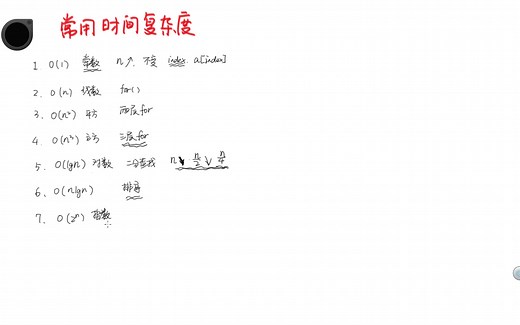 常用时间复杂度
1 O(1) 常数 n↗ 不变 index a[index]
2. O(n) 线数 for()
3. O(n²) 平方 两层for
4. O(n³) 立方 三层for
5. O(lgn) 对数 二分查找 n↘ n/2 ↘ n/4
6. O(nlgn) 排序
7. O(2ⁿ) 指数